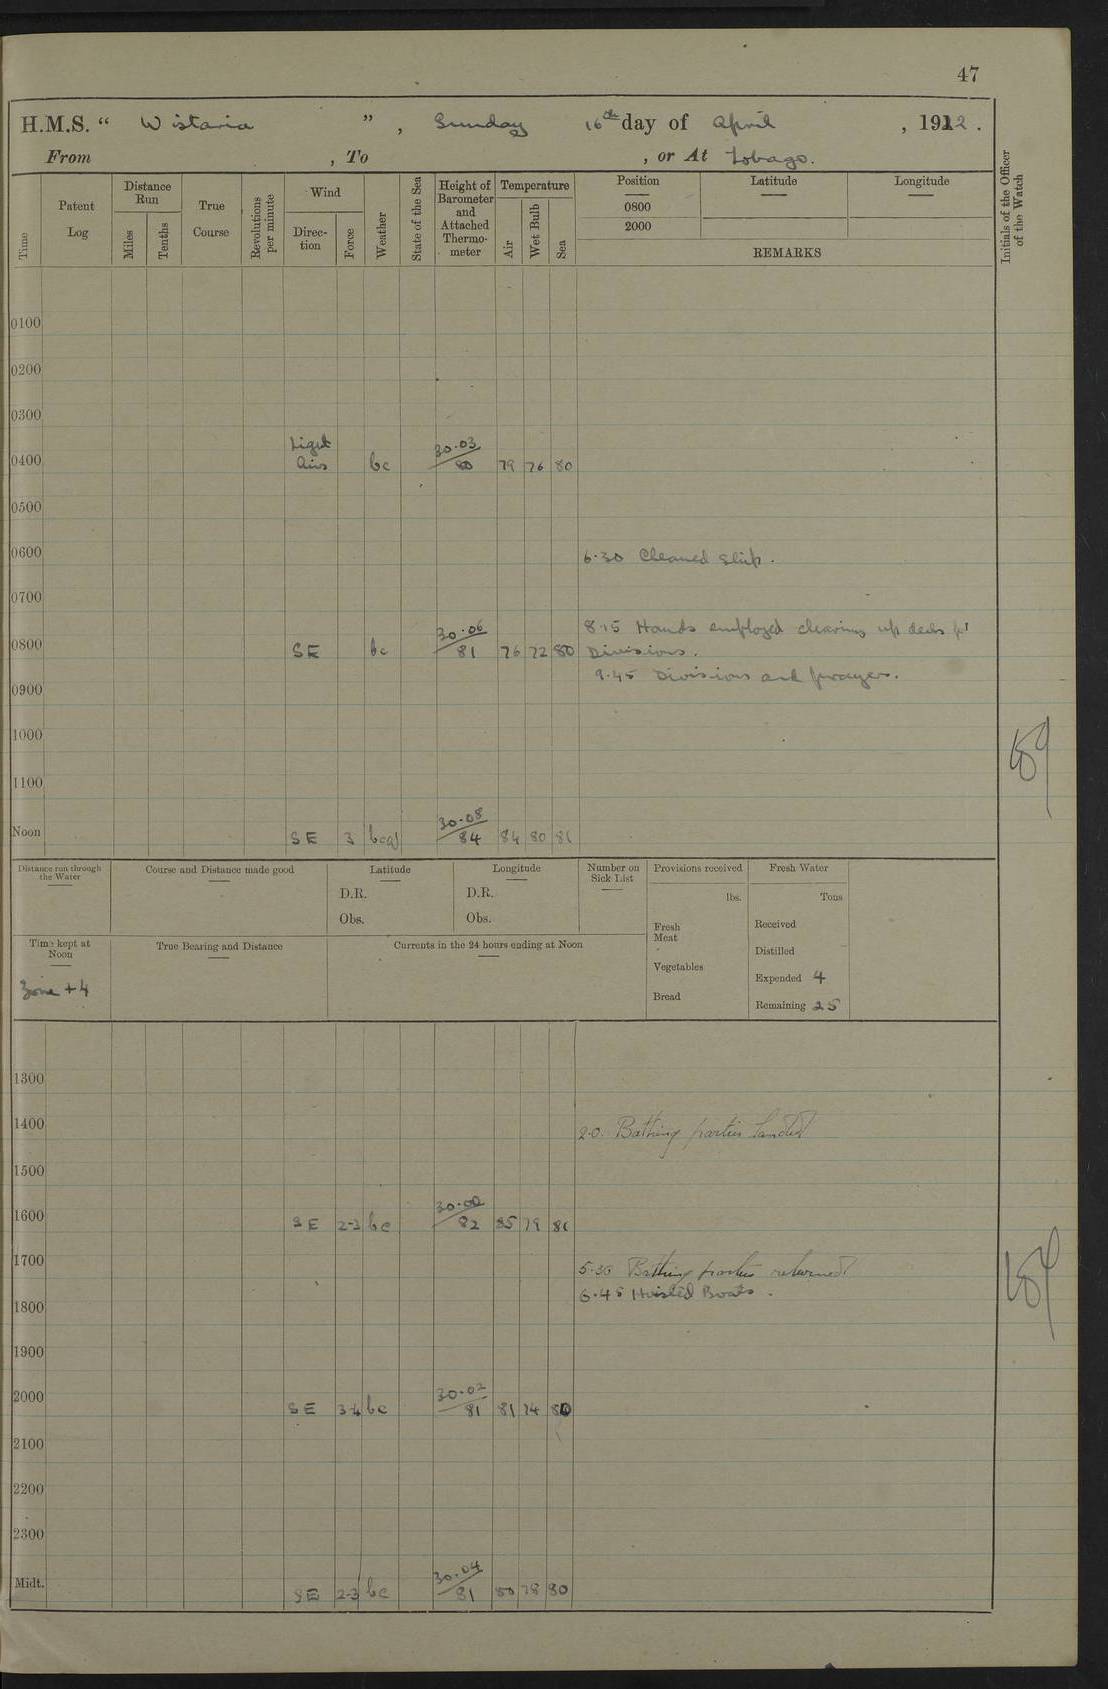 47
H.M.S. “ Wistaria ” , Sunday 16th day of April , 1922 .
From , To , or At Tobago.
Time
Patent Log
Distance Run
Miles
Tenths
True Course
Revolutions per minute
Wind
Direc- tion
Force
Weather
State of the Sea
Height of Barometer and Attached Thermo- meter
Temperature
Air
Wet Bulb
Sea
Position
Latitude
Longitude
0800
2000
REMARKS
Initials of the Officer of the Watch
0100
0200
0300
Light 30.03
0400 Airs bc 80 79 76 80
0500
0600 6.30 Cleaned Ship.
0700
30.06 8.15 Hands employed clearing up decks for
0800 SE bc 81 76 72 80 Divisions.
0900 9.45 Divisions and prayers.
1000
1100
30.08
Noon SE 3 84 84 80 81
Distance run through the Water
Course and Distance made good
Latitude
D.R.
Obs.
Longitude
D.R.
Obs.
Number on Sick List
Provisions received
lbs.
Fresh Meat
Vegetables
Bread
Fresh Water
Tons
Received
Distilled
Expended 4
Remaining 25
Time kept at Noon
Zone +4
True Bearing and Distance
Currents in the 24 hours ending at Noon
1300
1400 2.0. Bathing parties landed
1500
30.00
1600 SE 2-3 bc 82 85 79 81
1700 5.30 Bathing parties returned
6.45 Hoisted Boats.
1800
1900
30.02
2000 SE 3-4 bc 81 81 74 80
2100
2200
2300
30.04
Midt. SE 2-3 bc 81 80 78 80